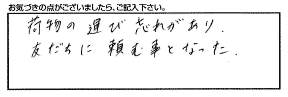 お気づきの点がございましたら、ご記入下さい。
荷物の運び忘れがあり、
友だちに頼む事となった。